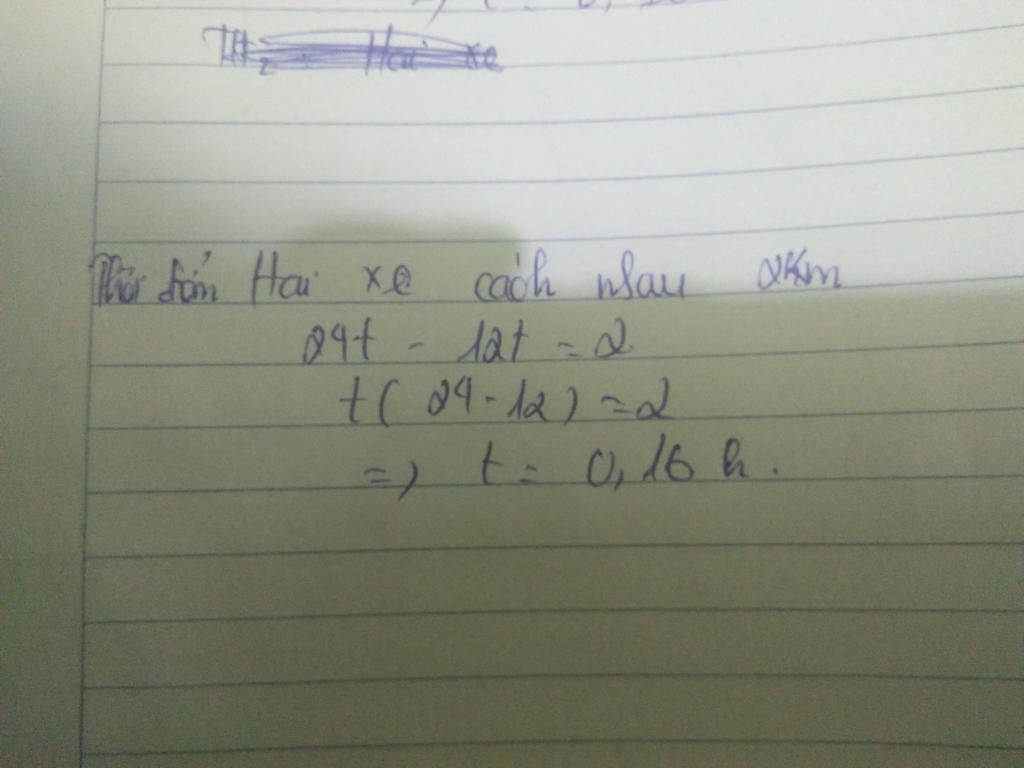 TH2: Hai xe
Thời điểm Hai xe cách nhau 2km
24t - 12t = 2
t( 24 - 12 ) = 2
=> t = 0,16 h.